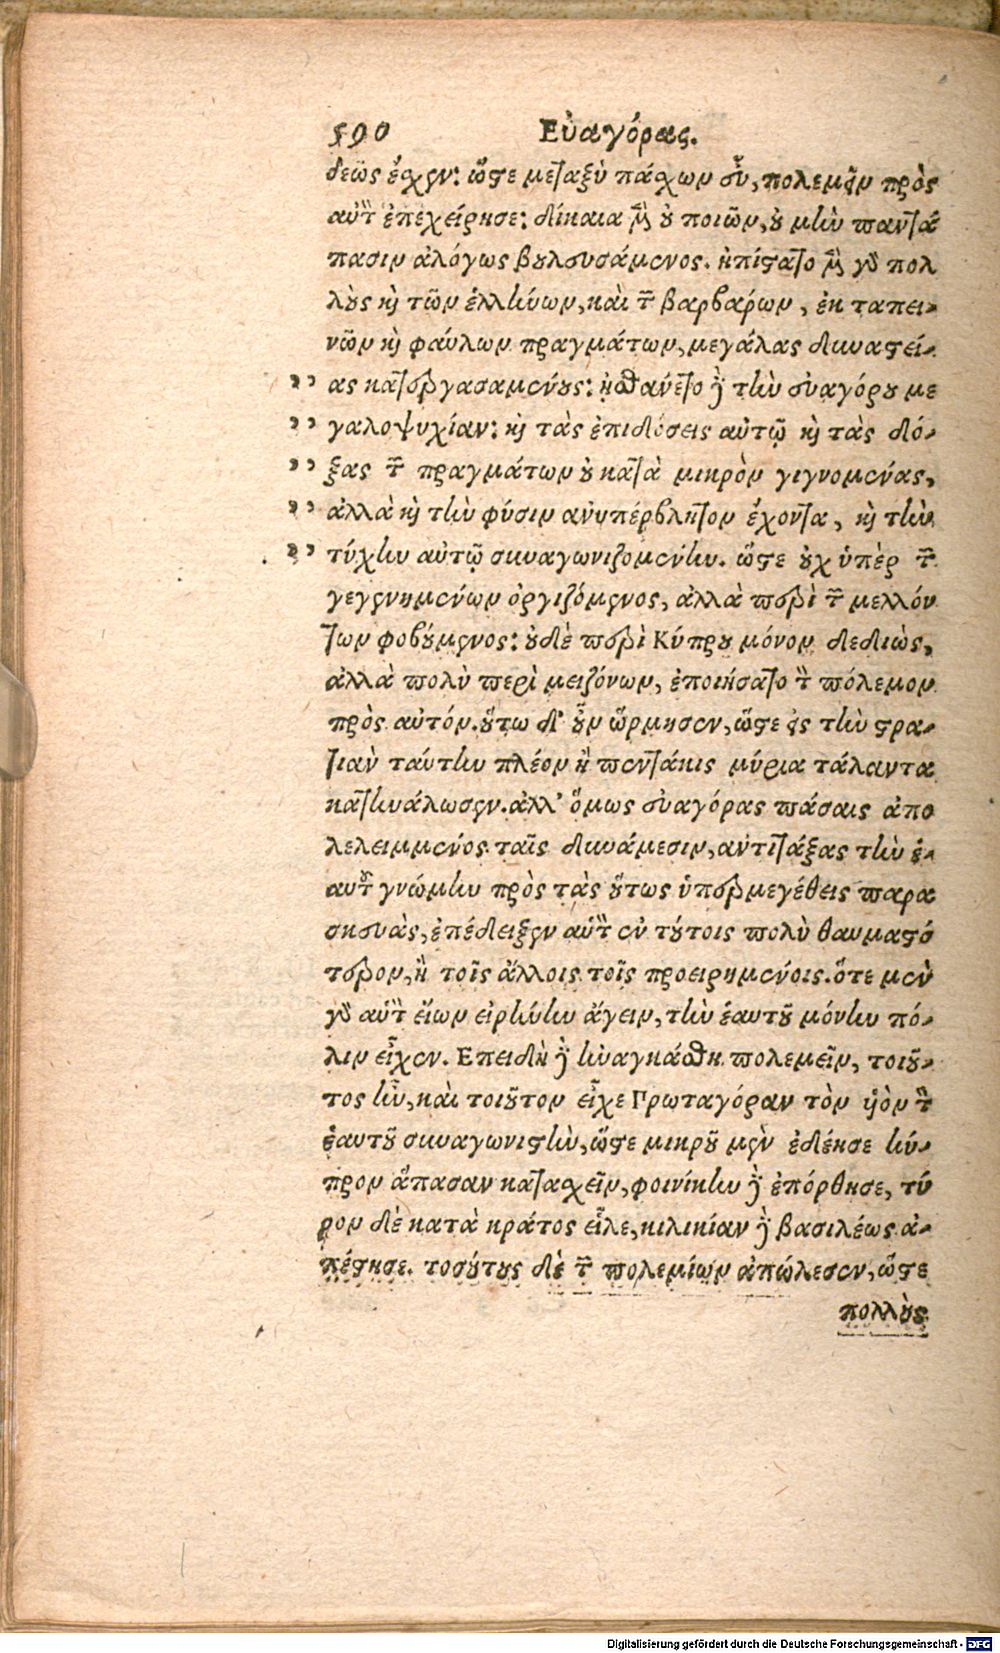 590 Εὐαγόρας.
δεῶς ἔχειν: ὥστε μεταξὺ πάχων εὖ, πολεμεῖν πρὸς
αὐτὸν ἐπεχείρησε: δίκαια μὲν οὐ ποιῶν, οὐ μὴν παντά
πασιν ἀλόγως βουλευσάμενος. ἠπίστατο μὲν γὸ πολ
λοὺς καὶ τῶν ἑλλήνων, καὶ τῶν βαρβάρων, ἐκ ταπει-
νῶν καὶ φαύλων πραγμάτων, μεγάλας δυναστεί-
„ ας κατεργασαμένους: ᾐσθάνετο δὲ τὴν εὐαγόρου με
„ γαλοψυχίαν: καὶ τὰς ἐπιδόσεις αὐτῷ καὶ τὰς δό-
„ ξας τῶν πραγμάτων οὐ κατὰ μικρὸν γιγνομένας,
„ ἀλλὰ καὶ τὴν φύσιν ἀνυπέρβλητον ἔχοντα, καὶ τὴν
„ τύχην αὐτῷ συναγωνιζομένην. ὥστε οὐχ ὑπὲρ τῶν
γεγενημένων ὀργιζόμενος, ἀλλὰ περὶ τῶν μελλόν
των φοβούμενος: οὐδὲ περὶ Κύπρου μόνον δεδιὼς,
ἀλλὰ πολὺ περὶ μειζόνων, ἐποιήσατο τὸν πόλεμον
πρὸς αὐτόν. οὕτω δ' οὖν ὥρμησεν, ὥστε εἰς τὴν στρα-
τιὰν ταύτην πλέον ἢ πεντάκις μύρια τάλαντα
κατηνάλωσεν. ἀλλ' ὅμως εὐαγόρας πάσαις ἀπο
λελειμμένος ταῖς δυνάμεσιν, ἀντιτάξας τὴν ἑ-
αυτοῦ γνώμην πρὸς τὰς οὕτως ὑπερμεγέθεις παρα
σκευὰς, ἐπέδειξεν αὑτὸν ἐν τούτοις πολὺ θαυμαστό
τερον, ἢ τοῖς ἄλλοις τοῖς προειρημένοις. ὅτε μὲν
γὸ αὑτὸν εἴων εἰρήνην ἄγειν, τὴν ἑαυτοῦ μόνην πό-
λιν εἶχεν. Επειδὴ δὲ ἠναγκάσθη πολεμεῖν, τοιοῦ-
τος ἦν, καὶ τοιοῦτον εἶχε Πρωταγόραν τὸν ὑὸν τὸν
ἑαυτοῦ συναγωνιστὴν, ὥστε μικροῦ μὲν ἐδέησε κύ-
προν ἅπασαν κατασχεῖν, φοινίκην δὲ ἐπόρθησε, τύ
ρον δὲ κατὰ κράτος εἷλε, κιλικίαν δὲ βασιλέως ἀ-
πέστησε. τοσούτους δὲ τῶν πολεμίων ἀπώλεσεν, ὥστε
πολλοὺς
Digitalisierung gefördert durch die Deutsche Forschungsgemeinschaft - DFG